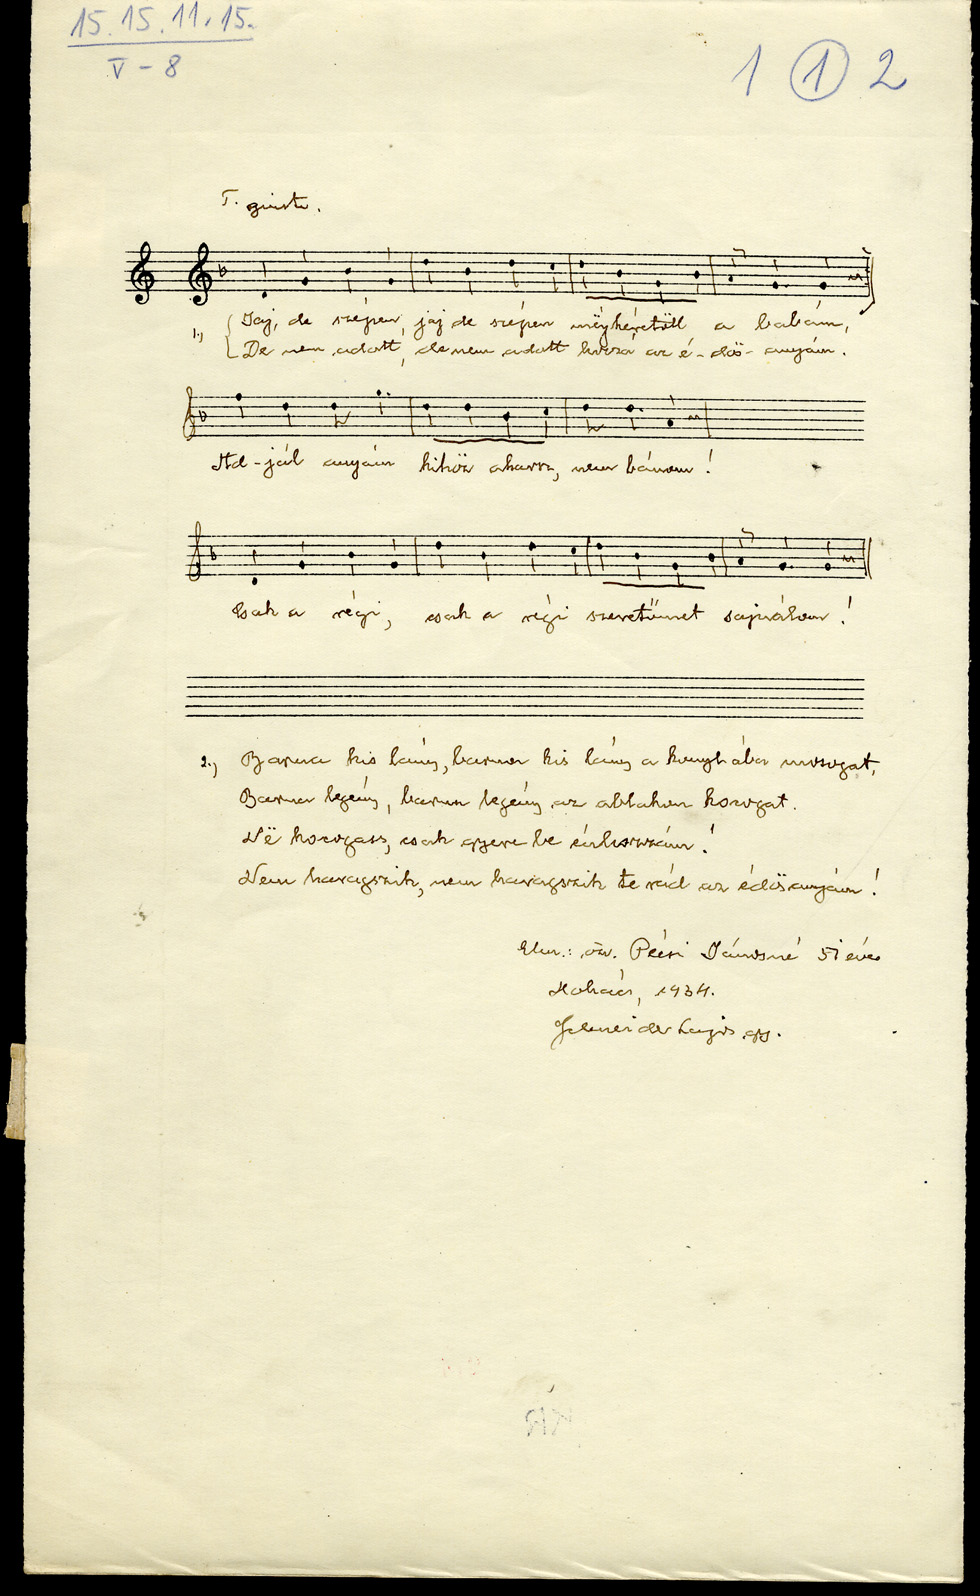 15. 15. 11. 15.
V - 8
1 1 2
T. giusto.
1.) Jaj, de szépen, jaj de szépen mëgkéretött a babám,
De nem adott, de nem adott hozzá az é-dös-anyám.
Ad-jál anyám kihöz akarsz, nem bánom!
Csak a régi, csak a régi szeretőmet sajnálom!
2.) Barna kis lány, barna kis lány a konyhába mosogat,
Barna legény, barna legény az ablakon kocogat.
Në kocogass, csak gyere be énhozzám!
Nem haragszik, nem haragszik te rád az édösanyám!
Elm.: özv. Pécsi Jánosné 51 éves
Mohács, 1934.
Schneider Lajos gy.